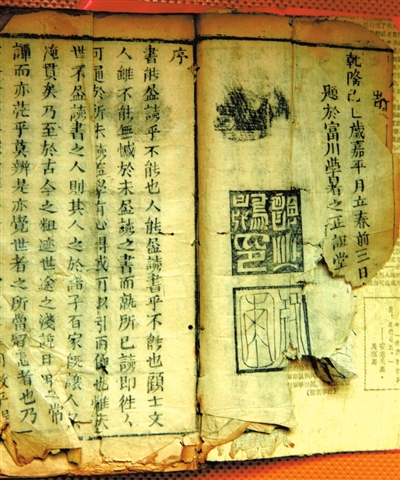 乾隆己巳歲嘉平月立春前三日
題於富川學署之正誼堂
序
書能盡讀乎不能也人能盡讀書乎不能也顧士文
人雖不能無憾於未盡讀之書而就所已讀即往々
可通於所未讀必有心得或可以引而伸也惟夫
世不盡讀書之人則其人之於諸子百家既讓人以
淹貫矣乃至於古今之粗迹世途之淺近日用之常
譚而亦茫乎莫辨是亦覺世者之所當留意者也乃一